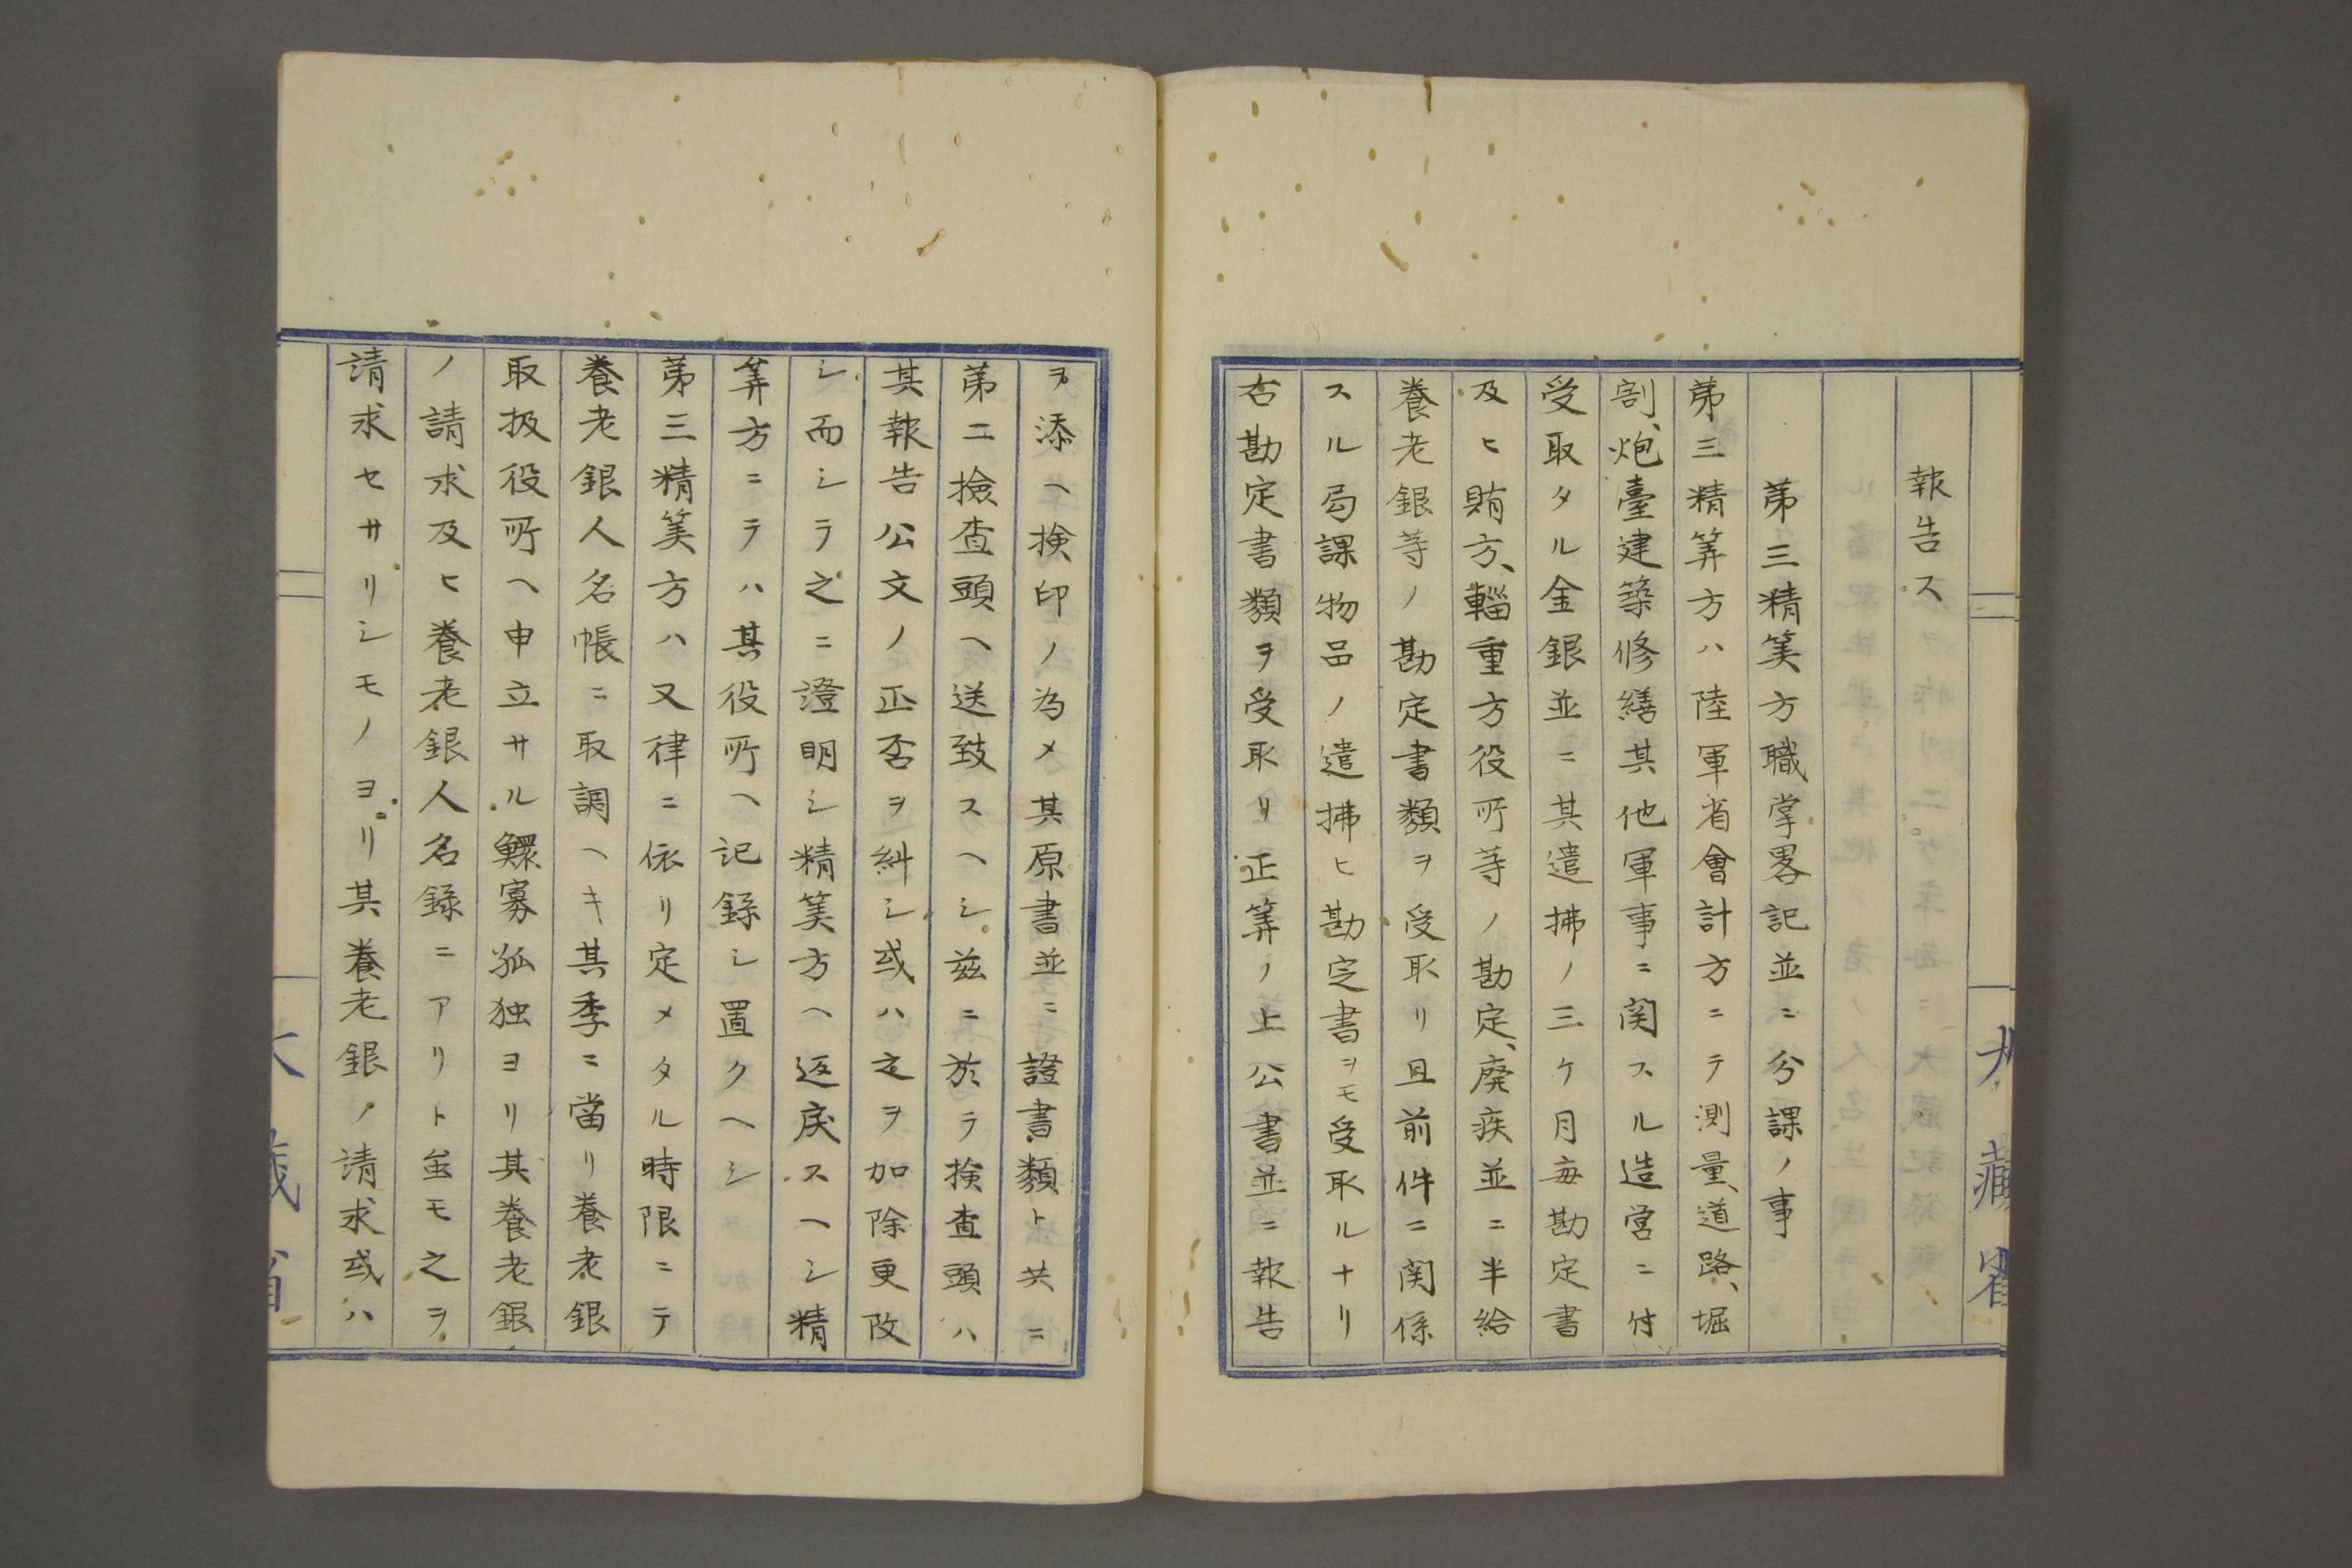 報告ス
第三精筭方職掌畧記並ニ分課ノ事
第三精筭方ハ陸軍省會計方ニテ測量、道路、堀
割、炮臺建築修繕其他軍事ニ関スル造営ニ付
受取タル金銀並ニ其遣拂ノ三ケ月毎勘定書
及ヒ賄方、輜重方役所等ノ勘定、廃疾並ニ半給
養老銀等ノ勘定書類ヲ受取リ且前件ニ関係
スル局課物品ノ遣拂ヒ勘定書ヲモ受取ルナリ
右勘定書類ヲ受取リ正筭ノ上公書並ニ報告
ヲ添ヘ検印ノ為メ其原書並ニ證書類ト共ニ
第二撿查頭ヘ送致スヘシ茲ニ於テ検査頭ハ
其報告公文ノ正否ヲ糾シ或ハ之ヲ加除更改
シ而シテ之ニ證明シ精筭方ヘ返戻スヘシ精
筭方ニテハ其役所ヘ記録シ置クヘシ
第三精筭方ハ又律ニ依リ定メタル時限ニテ
養老銀人名帳ニ取調ヘキ其季ニ當リ養老銀
取扱役所ヘ申立サル鰥寡孤独ヨリ其養老銀
ノ請求及ヒ養老銀人名録ニアリト雖モ之ヲ
請求セサリシモノヨリ其養老銀ノ請求或ハ
大藏省